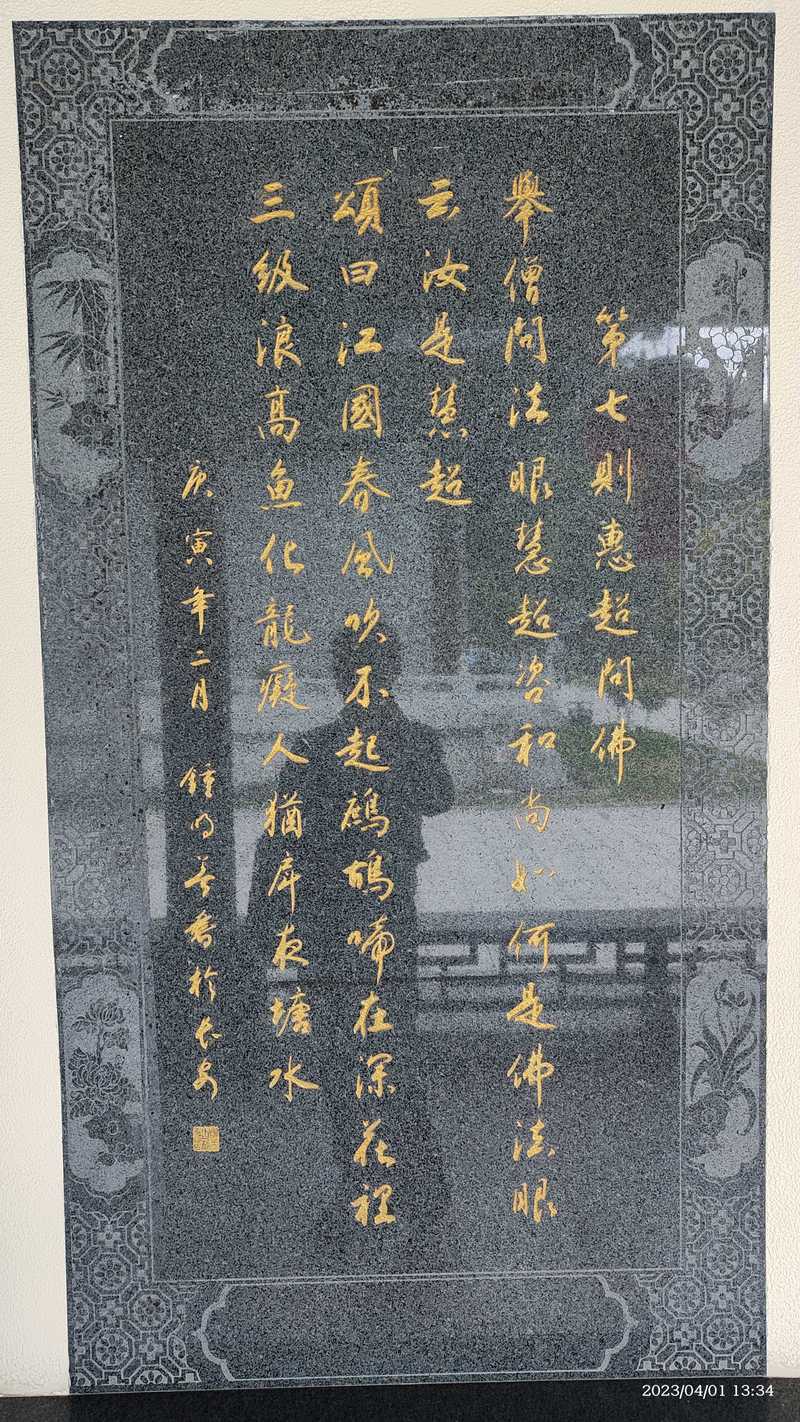 第七則惠超問佛
舉僧問法眼慧超咨和尚如何是佛法眼
云汝是慧超
頌曰江國春風吹不起鷓鴣啼在深花裡
三級浪高魚化龍癡人猶戽夜塘水
庚寅年二月 鍾明善書於長安
2023/04/01 13:34